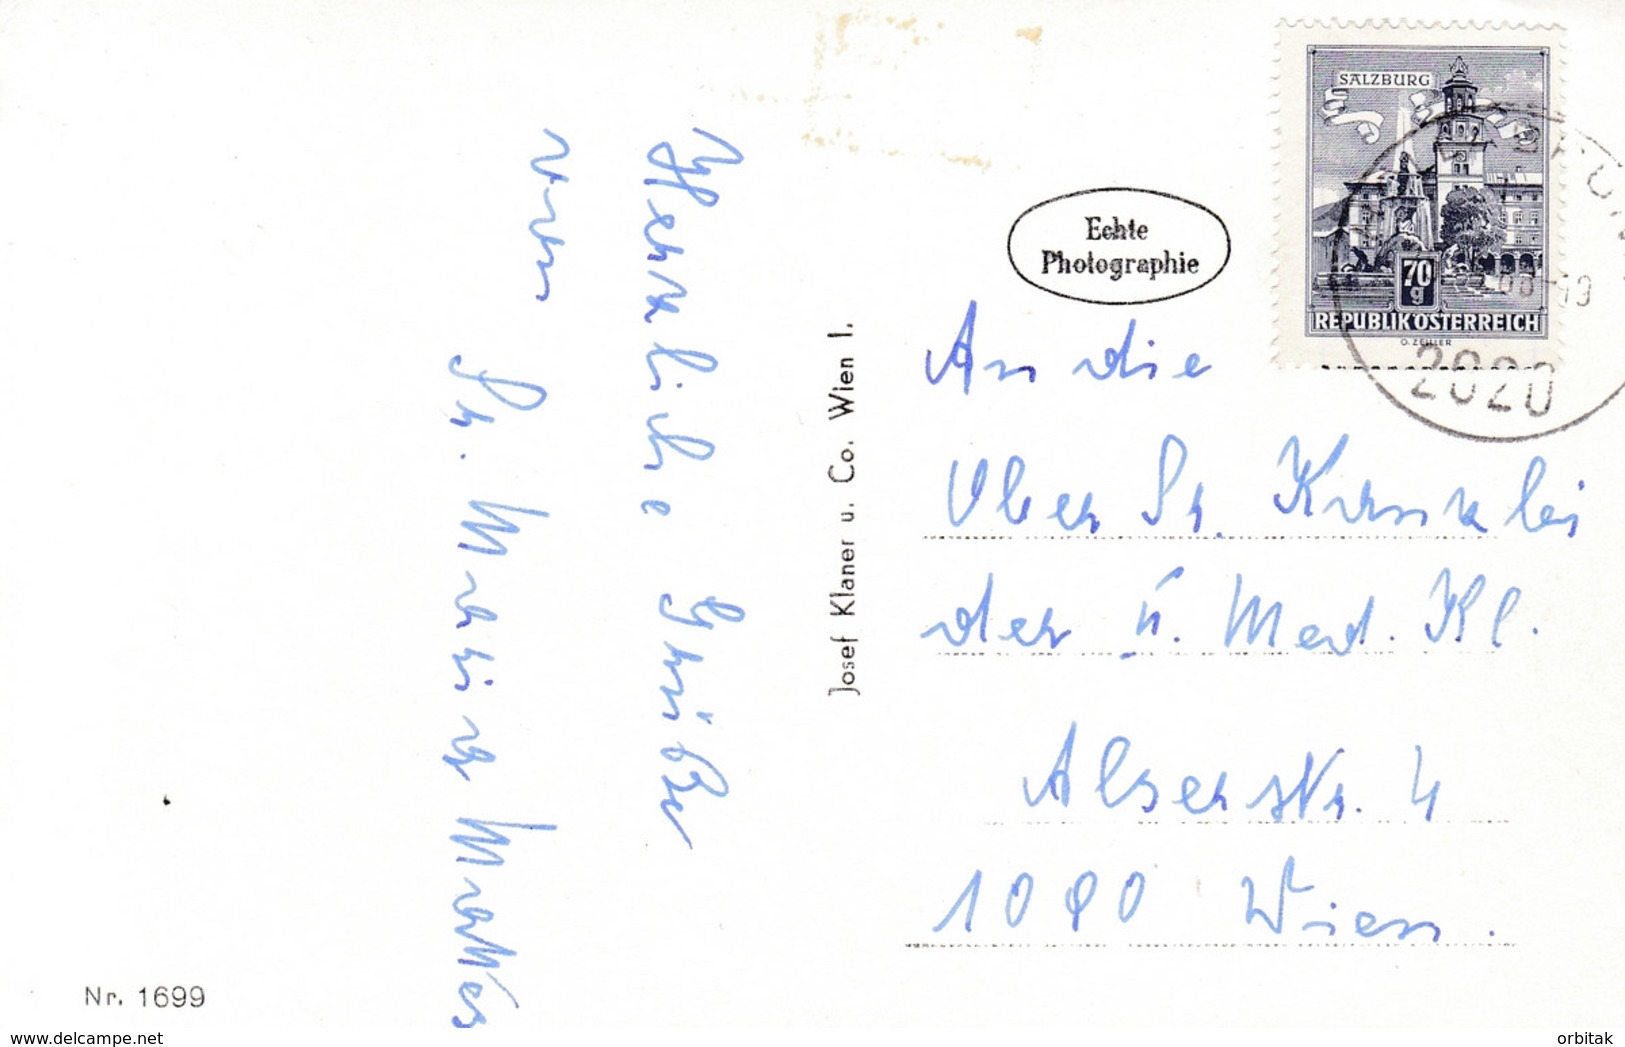 Herzliche Grüße
von
Sr.
SALZBURG
70
g
REPUBLIK ÖSTERREICH
O. ZEILLER
-19
2020
Echte
Photographie
Josef Klaner u. Co. Wien I.
An die
Ober Sr. Kanzlei
der II. Med. Kl.
Alserstr. 4
1090 Wien.
Nr. 1699
www.delcampe.net
orbitak